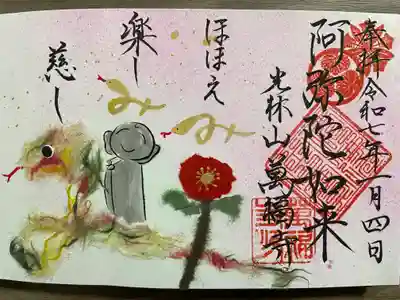 奉拝 令和七年一月四日
阿弥陀如来
光林山 萬福寺
ほほえみ
楽しみ
慈し